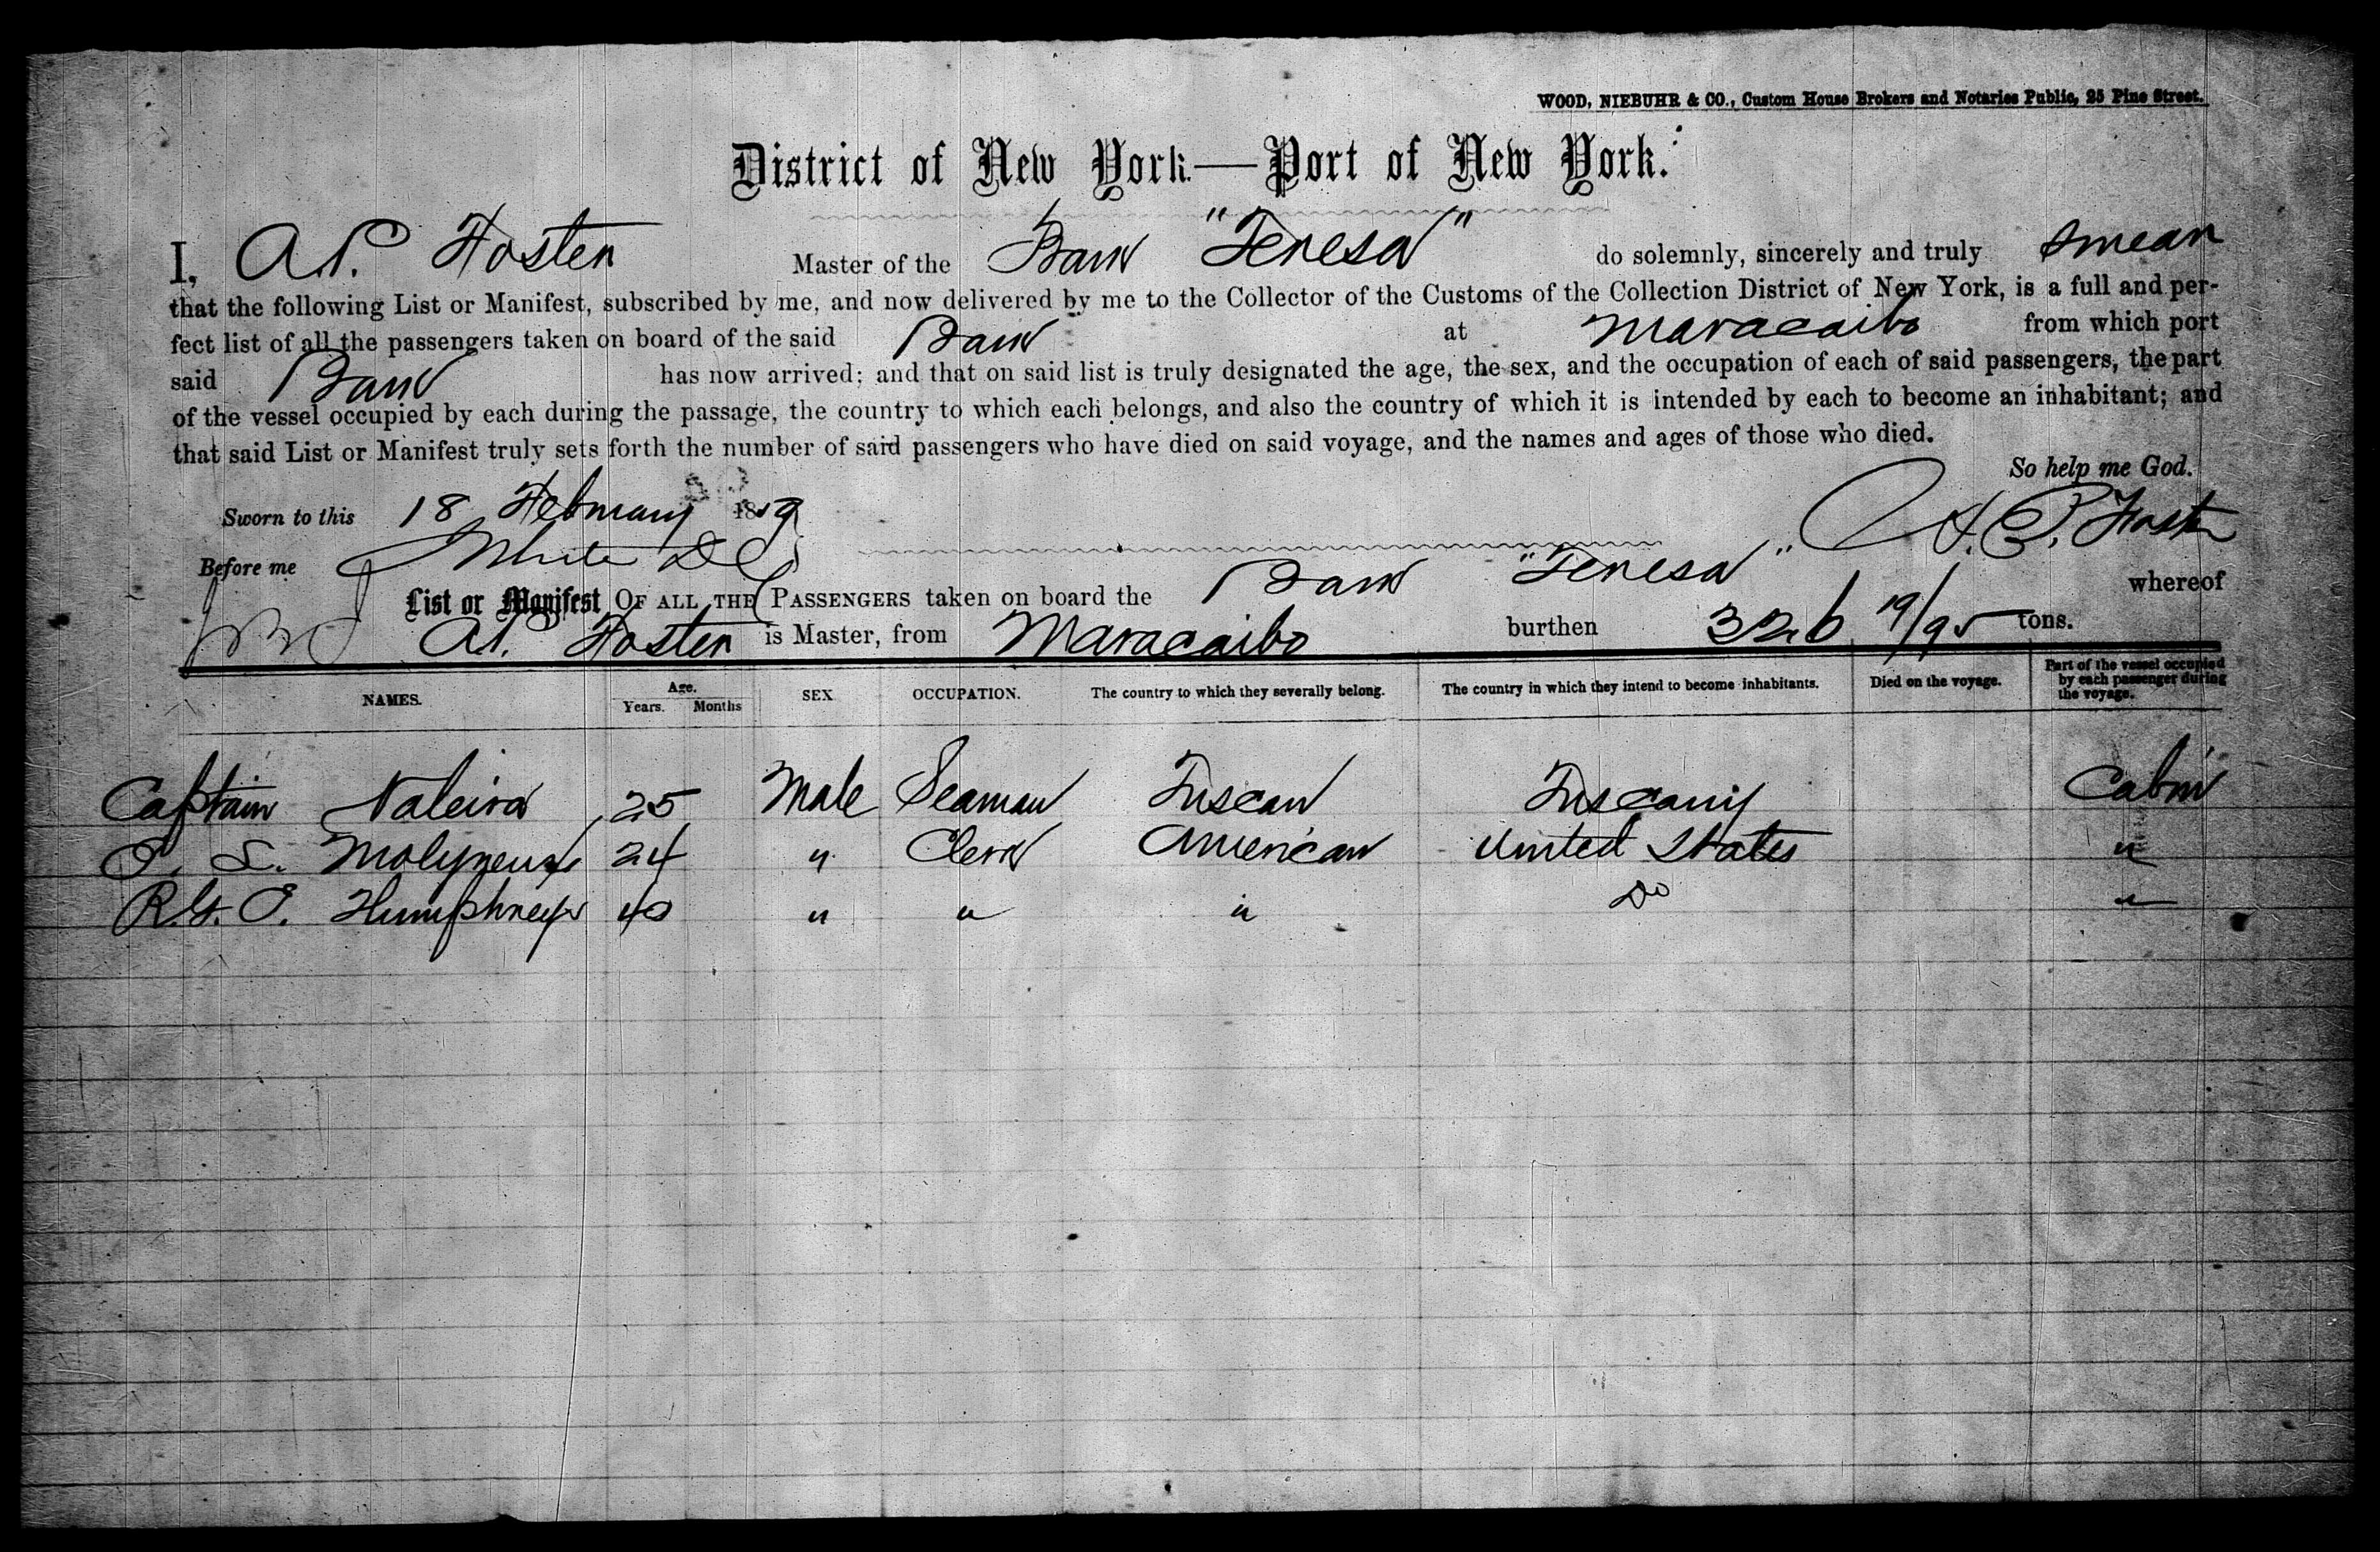 WOOD, NIEBUHR & CO., Custom House Brokers and Notaries Public, 25 Pine Street.
District of New York—Port of New York.
I, A.P. Foster Master of the Bark "Teresa" do solemnly, sincerely and truly swear
that the following List or Manifest, subscribed by me, and now delivered by me to the Collector of the Customs of the Collection District of New York, is a full and per-
fect list of all the passengers taken on board of the said Bark at Maracaibo from which port
said Bark has now arrived; and that on said list is truly designated the age, the sex, and the occupation of each of said passengers, the part
of the vessel occupied by each during the passage, the country to which each belongs, and also the country of which it is intended by each to become an inhabitant; and
that said List or Manifest truly sets forth the number of said passengers who have died on said voyage, and the names and ages of those who died.
So help me God.
Sworn to this 18 February 18 A. P. Foster
Before me White D C
List or Manifest OF ALL THE PASSENGERS taken on board the Bark "Teresa" whereof
A.P. Foster is Master, from Maracaibo burthen 326 19/95 tons.
NAMES. Age. Years. Months SEX OCCUPATION. The country to which they severally belong. The country in which they intend to become inhabitants. Died on the voyage. Part of the vessel occupied by each passenger during the voyage.
Captain Valeira 25 Male Seaman Tuscan Tuscany Cabin
S. Molyneux 24 " Clerk American United States "
R.G. O. Humphreys 40 " " " Do "